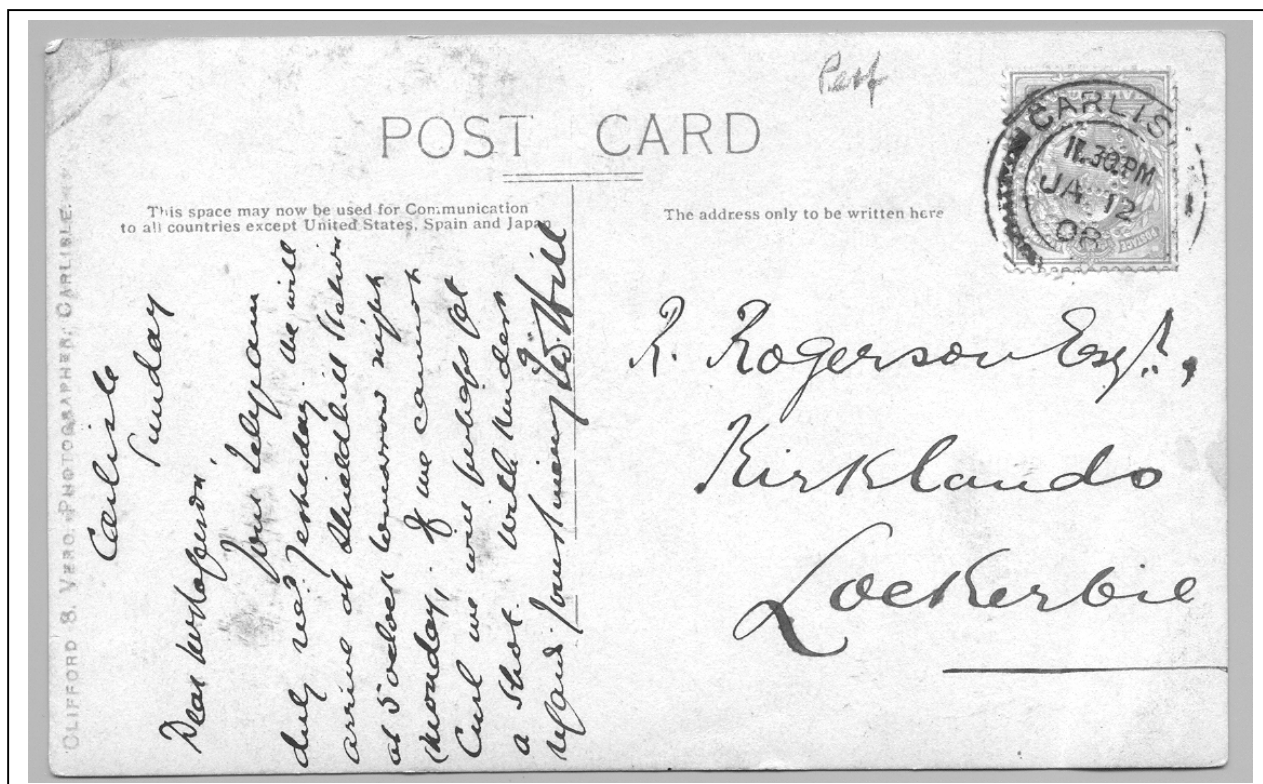 Perf
POST CARD
This space may now be used for Communication
to all countries except United States, Spain and Japan
The address only to be written here
CARLIS
11.30PM
JA 12
08
CLIFFORD S. VERO, PHOTOGRAPHER, CARLISLE.
Carlisle
Sunday
Dear Mr Rogerson,
Your Telegram
duly recd yesterday we will
arrive at Shieldhill Station
at 5 oclock tomorrow night
(Monday), if we cannot
Curl we will perhaps get
a Shot. With kindest
regards Yours sincerely Hill
R. Rogerson Esqr.,
Kirklands
Lockerbie